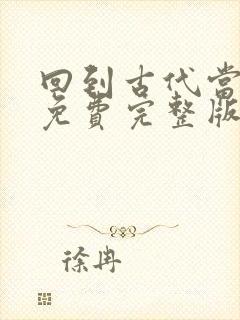 回到古代当
免費完整版
徐冉